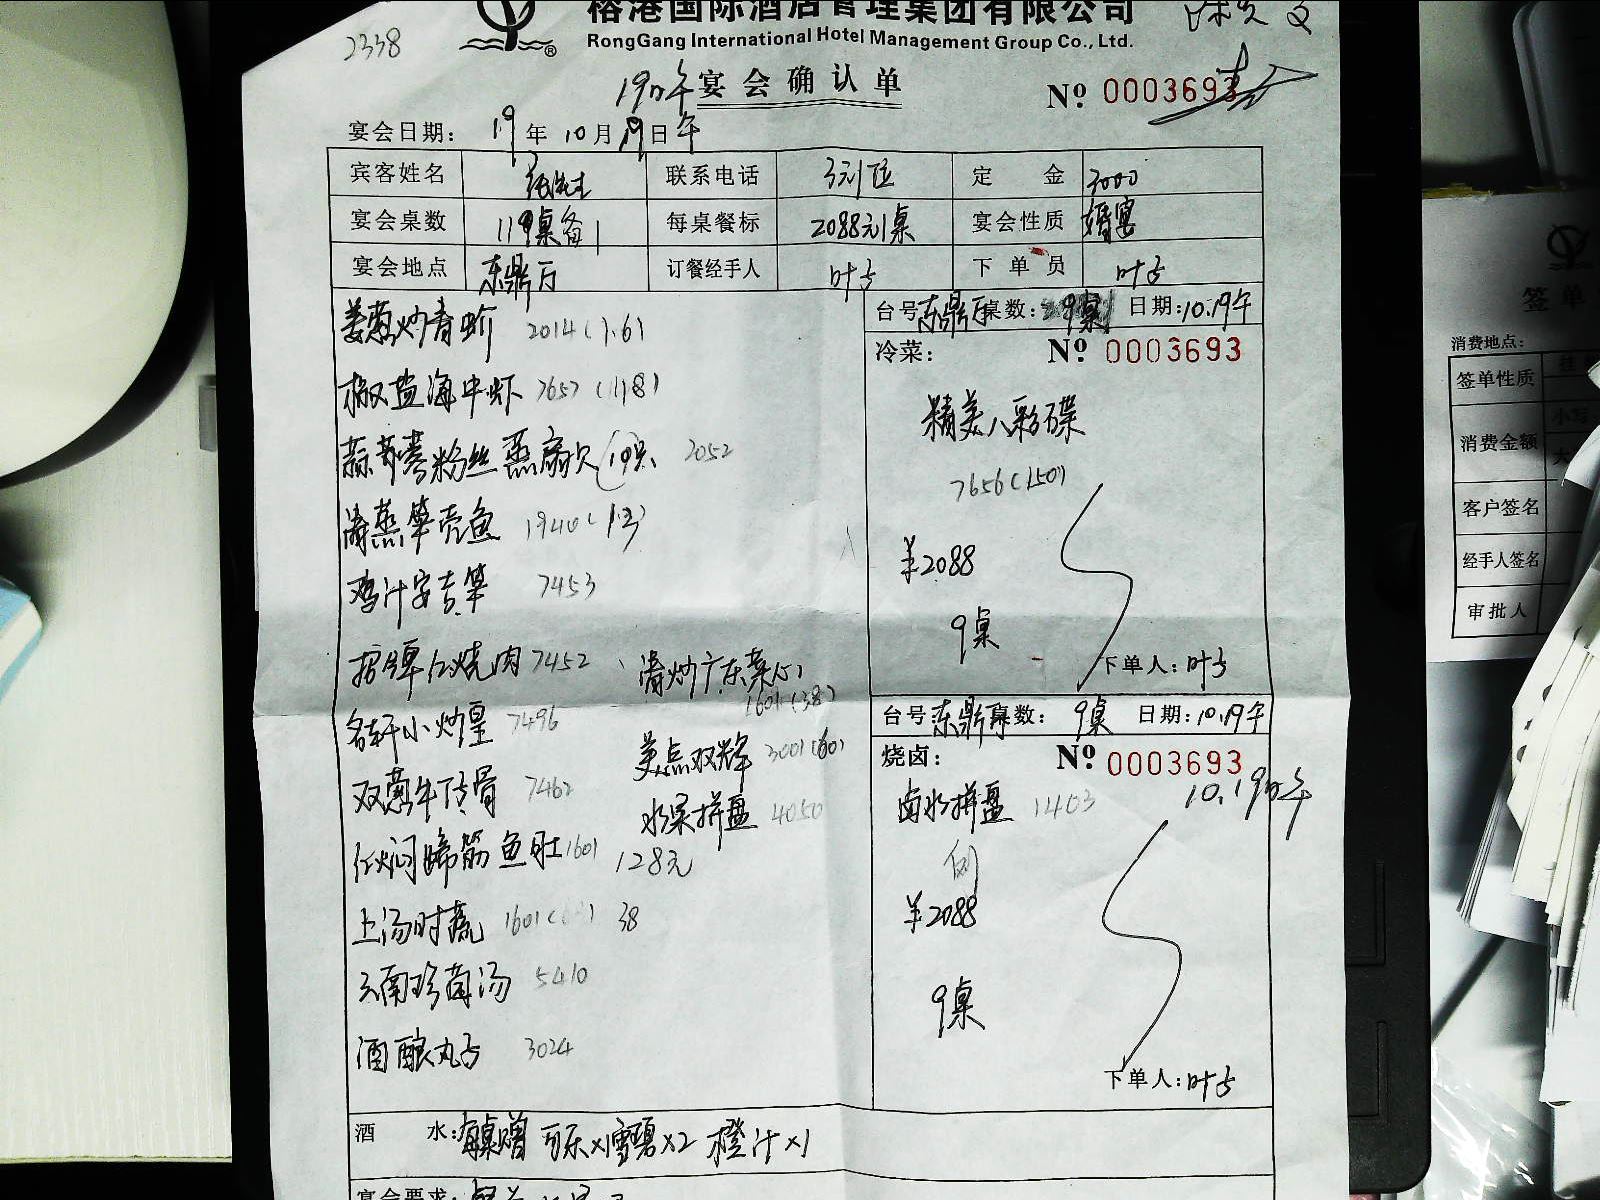 榕港国际酒店管理集团有限公司
2338
RongGang International Hotel Management Group Co., Ltd.
19日午 宴会确认单
№ 0003693
宴会日期: 19年10月19日午
宾客姓名 联系电话 3元/位 定金 3000
宴会桌数 每桌餐标 2088元/桌 宴会性质 婚宴
宴会地点 东鼎厅 订餐经手人 下单员
姜葱炒青蚧 2014(1.6)
椒盐海中虾 7657
蒜蓉粉丝蒸扇贝(10只) 2052
清蒸笋壳鱼 1940
鸡汁安吉笋 7453
招牌红烧肉 7452
名轩小炒皇 7496
双葱牛仔骨 7462
红焖蹄筋鱼肚 1601 128元
上汤时蔬 1601 38
云南珍菌汤 5410
酒酿丸子 3024
清炒广东菜心
1601(38)
美点双辉 3001(60)
水果拼盘 4050
台号:东鼎厅 桌数: 9桌 日期:10.19午
冷菜: № 0003693
精美八彩碟
7656(150)
¥2088
9桌
下单人:
台号:东鼎厅 桌数: 9桌 日期:10.19午
烧卤: № 0003693
10.19日午
卤水拼盘 1403
例
¥2088
9桌
下单人:
酒水:每桌赠 可乐×1雪碧×2 橙汁×1
宴会要求:
签单
消费地点:
签单性质
消费金额 小写
大
客户签名
经手人签名
审批人